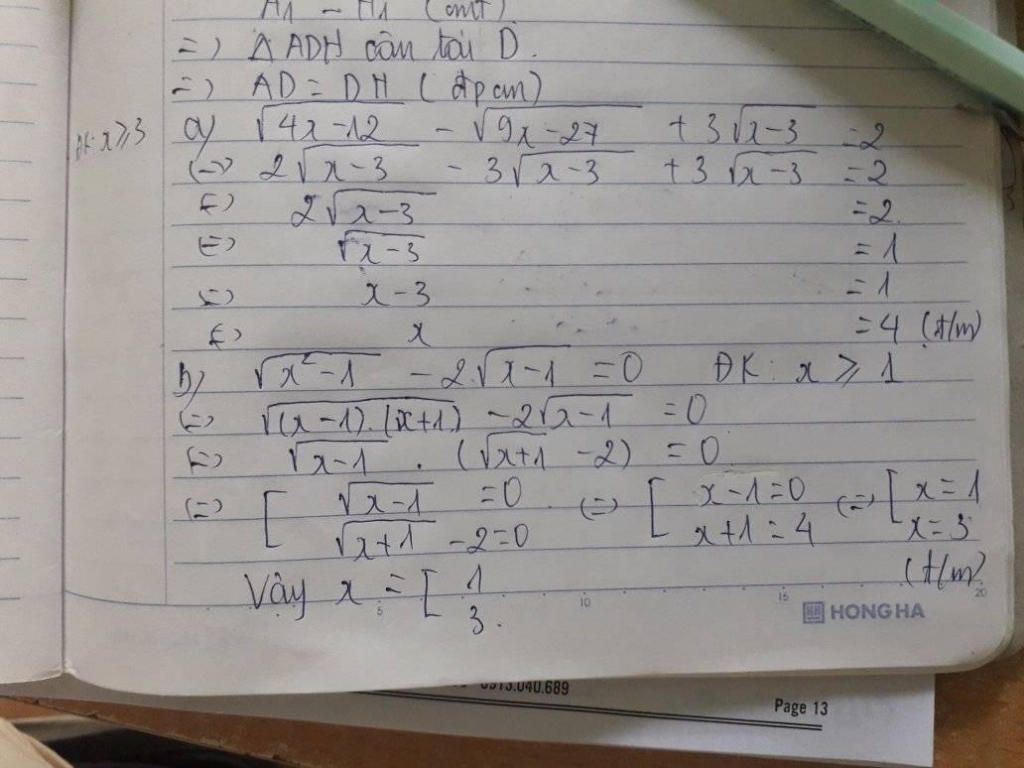 =) Δ ADH cân tại D.
=) AD = DH (đpcm)
ĐK: x ≥ 3
a) √(4x-12) - √(9x-27) + 3√(x-3) = 2
(=) 2√(x-3) - 3√(x-3) + 3√(x-3) = 2
(=) 2√(x-3) = 2
(=) √(x-3) = 1
(=) x-3 = 1
(=) x = 4 (t/m)
b) √(x²-1) - 2√(x-1) = 0 ĐK: x ≥ 1
(=) √((x-1).(x+1)) - 2√(x-1) = 0
(=) √(x-1) . (√(x+1) - 2) = 0
(=) [ √(x-1) = 0 (=) [ x-1=0 (=) [ x=1
√(x+1) - 2=0 x+1=4 x=3
(t/m)
Vậy x = [ 1
3.
5 10 15 20
HONG HA
0913.040.689
Page 13